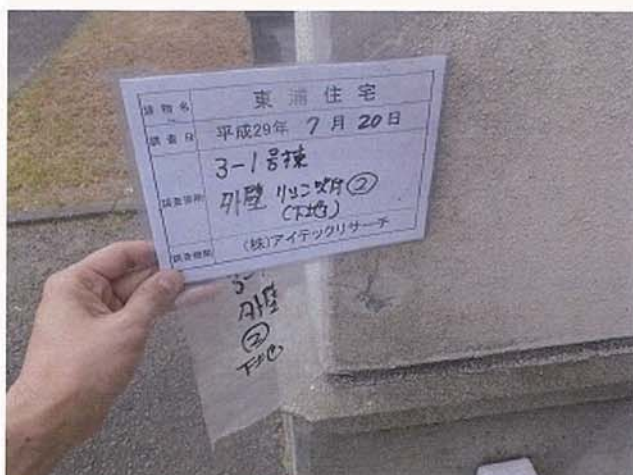 建物名 東浦住宅
調査日 平成29年 7月20日
調査箇所 3-1号棟
外壁 リシン吹付②
(下地)
調査機関 (株)アイテックリサーチ
3-1
外壁
②
下地